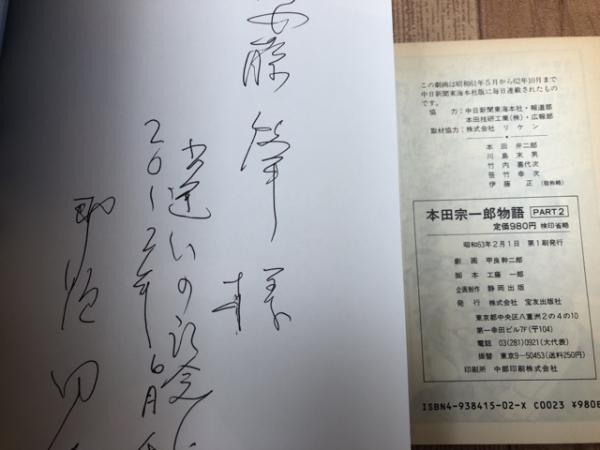 様
出逢いの記念に
2012年6月
この劇画は昭和61年5月から62年10月まで
中日新聞東海本社版に毎日連載されたもの
です。
協力:中日新聞東海本社・報道部
本田技研工業(株)・広報部
取材協力:株式会社 リケン
本田弁二郎
川島末男
竹内喜代次
笹竹幸次
伊藤正(敬称略)
本田宗一郎物語 PART2
定価980円 検印省略
昭和63年2月1日 第1刷発行
劇画 甲良幹二郎
脚本 工藤一郎
企画制作 静岡出版
発行 株式会社 宝友出版社
東京都中央区八重洲2の4の10
第一幸田ビル7F(〒104)
電話 03(281)0921(大代表)
振替 東京9-50453(送料250円)
印刷所 中部印刷株式会社
ISBN4-938415-02-X C0023 ¥980E